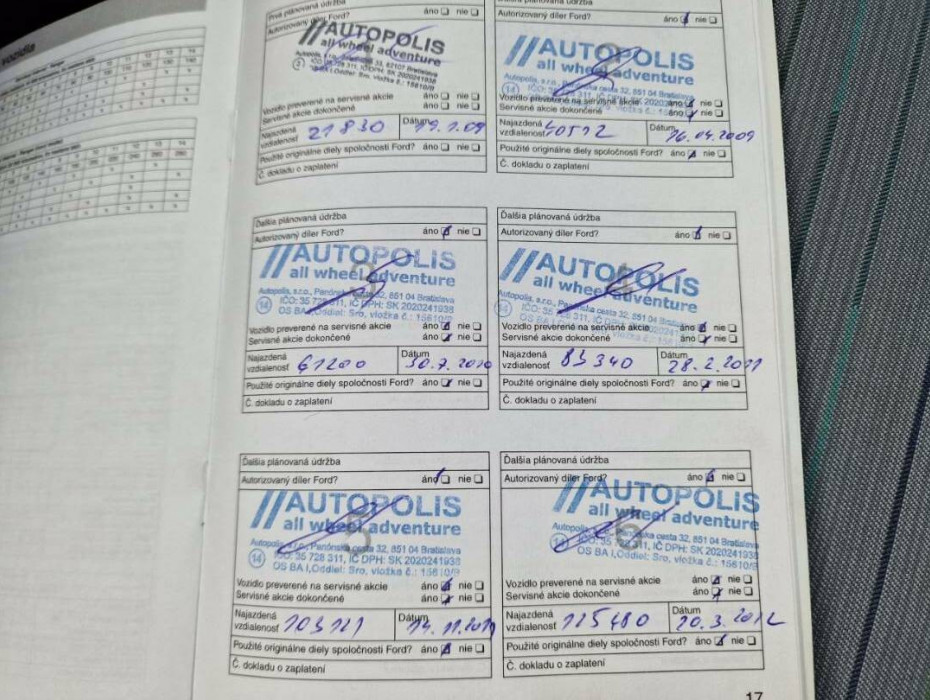 vozidla
Prvá plánovaná údržba
Autorizovaný díler Ford? áno nie
//AUTOPOLIS
all wheel adventure
Vozidlo preverené na servisné akcie áno nie
Servisné akcie dokončené áno nie
Najazdená vzdialenosť 21830 Dátum 19.1.09
Použité originálne diely spoločnosti Ford? áno nie
Č. dokladu o zaplatení
Autorizovaný díler Ford? áno nie
//AUTOPOLIS
all wheel adventure
Vozidlo preverené na servisné akcie áno nie
Servisné akcie dokončené áno nie
Najazdená vzdialenosť 40512 Dátum 16.04.2009
Použité originálne diely spoločnosti Ford? áno nie
Č. dokladu o zaplatení
Ďalšia plánovaná údržba
Autorizovaný díler Ford? áno nie
//AUTOPOLIS
all wheel adventure
Autopolis, s.r.o., Panónska cesta 32, 851 04 Bratislava
14 IČO: 35 728 311, IČ DPH: SK 2020241938
OS BA I,Oddiel: Sro, vložka č.: 15610/B
Vozidlo preverené na servisné akcie áno nie
Servisné akcie dokončené áno nie
Najazdená vzdialenosť 61200 Dátum 30.7.2010
Použité originálne diely spoločnosti Ford? áno nie
Č. dokladu o zaplatení
Ďalšia plánovaná údržba
Autorizovaný díler Ford? áno nie
//AUTOPOLIS
all wheel adventure
Autopolis, s.r.o., Panónska cesta 32, 851 04 Bratislava
Vozidlo preverené na servisné akcie áno nie
Servisné akcie dokončené áno nie
Najazdená vzdialenosť 83340 Dátum 28.2.2011
Použité originálne diely spoločnosti Ford? áno nie
Č. dokladu o zaplatení
Ďalšia plánovaná údržba
Autorizovaný díler Ford? áno nie
//AUTOPOLIS
all wheel adventure
Autopolis, s.r.o., Panónska cesta 32, 851 04 Bratislava
14 IČO: 35 728 311, IČ DPH: SK 2020241938
OS BA I,Oddiel: Sro, vložka č.: 15610/B
Vozidlo preverené na servisné akcie áno nie
Servisné akcie dokončené áno nie
Najazdená vzdialenosť 103121 Dátum 14.11.2011
Použité originálne diely spoločnosti Ford? áno nie
Č. dokladu o zaplatení
Ďalšia plánovaná údržba
Autorizovaný díler Ford? áno nie
//AUTOPOLIS
all wheel adventure
Autopolis, s.r.o., Panónska cesta 32, 851 04 Bratislava
14 IČO: 35 728 311, IČ DPH: SK 2020241938
OS BA I,Oddiel: Sro, vložka č.: 15610/B
Vozidlo preverené na servisné akcie áno nie
Servisné akcie dokončené áno nie
Najazdená vzdialenosť 125480 Dátum 20.3.2012
Použité originálne diely spoločnosti Ford? áno nie
Č. dokladu o zaplatení
17